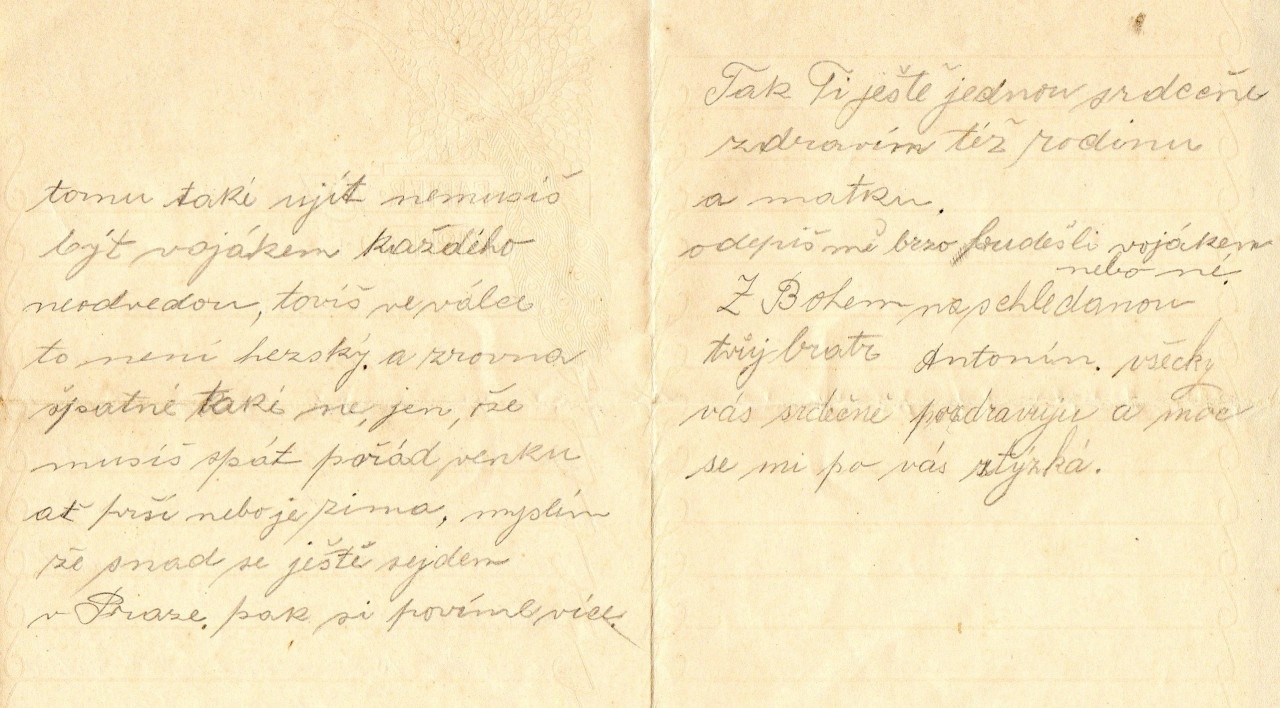 tomu také ujít nemusíš
být vojákem každého
neodvedou, tovíš ve válce
to není hezský, a zrovna
špatné také ne, jen, že
musíš spát pořád venku
ať prší nebo je zima, myslím
že snad se ještě sejdem
v Praze, pak si povíme více.
Tak Ti ještě jednou srdečně
zdravím též rodinu
a matku.
odepiš mě brzo budešli vojákem
nebo né.
Z Bohem na schledanou
tvůj bratr Antonín. všecky
vás srdečně pozdravuju a moc
se mi po vás stýzká.